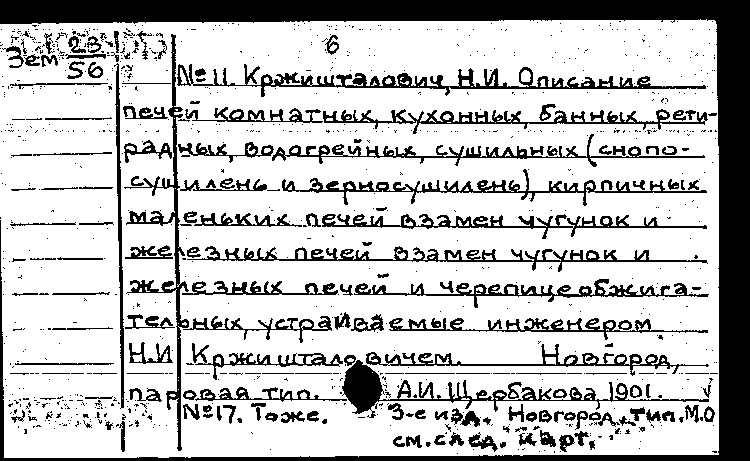 6
Зем 23
56
№11. Кржишталович, Н.И. Описание
печей комнатных, кухонных, банных, рети-
радных, водогрейных, сушильных (снопо-
сушилень и зерносушилень), кирпичных
маленьких печей взамен чугунок и
железных печей взамен чугунок и
железных печей и черепицеобжига-
тельных, устраиваемые инженером
Н.И Кржишталовичем. Новгород,
паровая тип. А.И. Щербакова, 1901.
№17. Тоже. 3-е изд. Новгород. тип. М.О
см. след. карт.